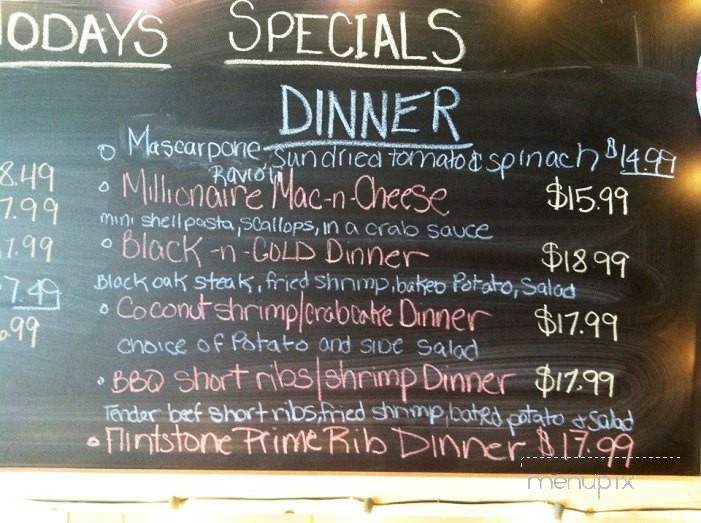 TODAY'S SPECIALS
DINNER
Mascarpone, Sundried tomato & spinach $14.99
Ravioli
8.49
Millionaire Mac-n-Cheese $15.99
7.99
mini shell pasta, scallops, in a crab sauce
1.99
Black -n- GOLD Dinner $18.99
Black oak steak, fried shrimp, baked Potato, Salad
7.49
Coconut shrimp/crabcake Dinner $17.99
.99
choice of Potato and side salad
BBQ short ribs/shrimp Dinner $17.99
Tender beef short ribs, fried shrimp, baked potato & Salad
Flintstone Prime Rib Dinner $17.99
menupix